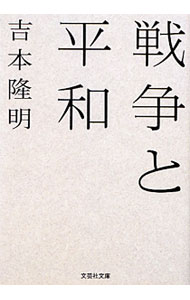 戦争と
平和
吉本隆明
文芸社文庫